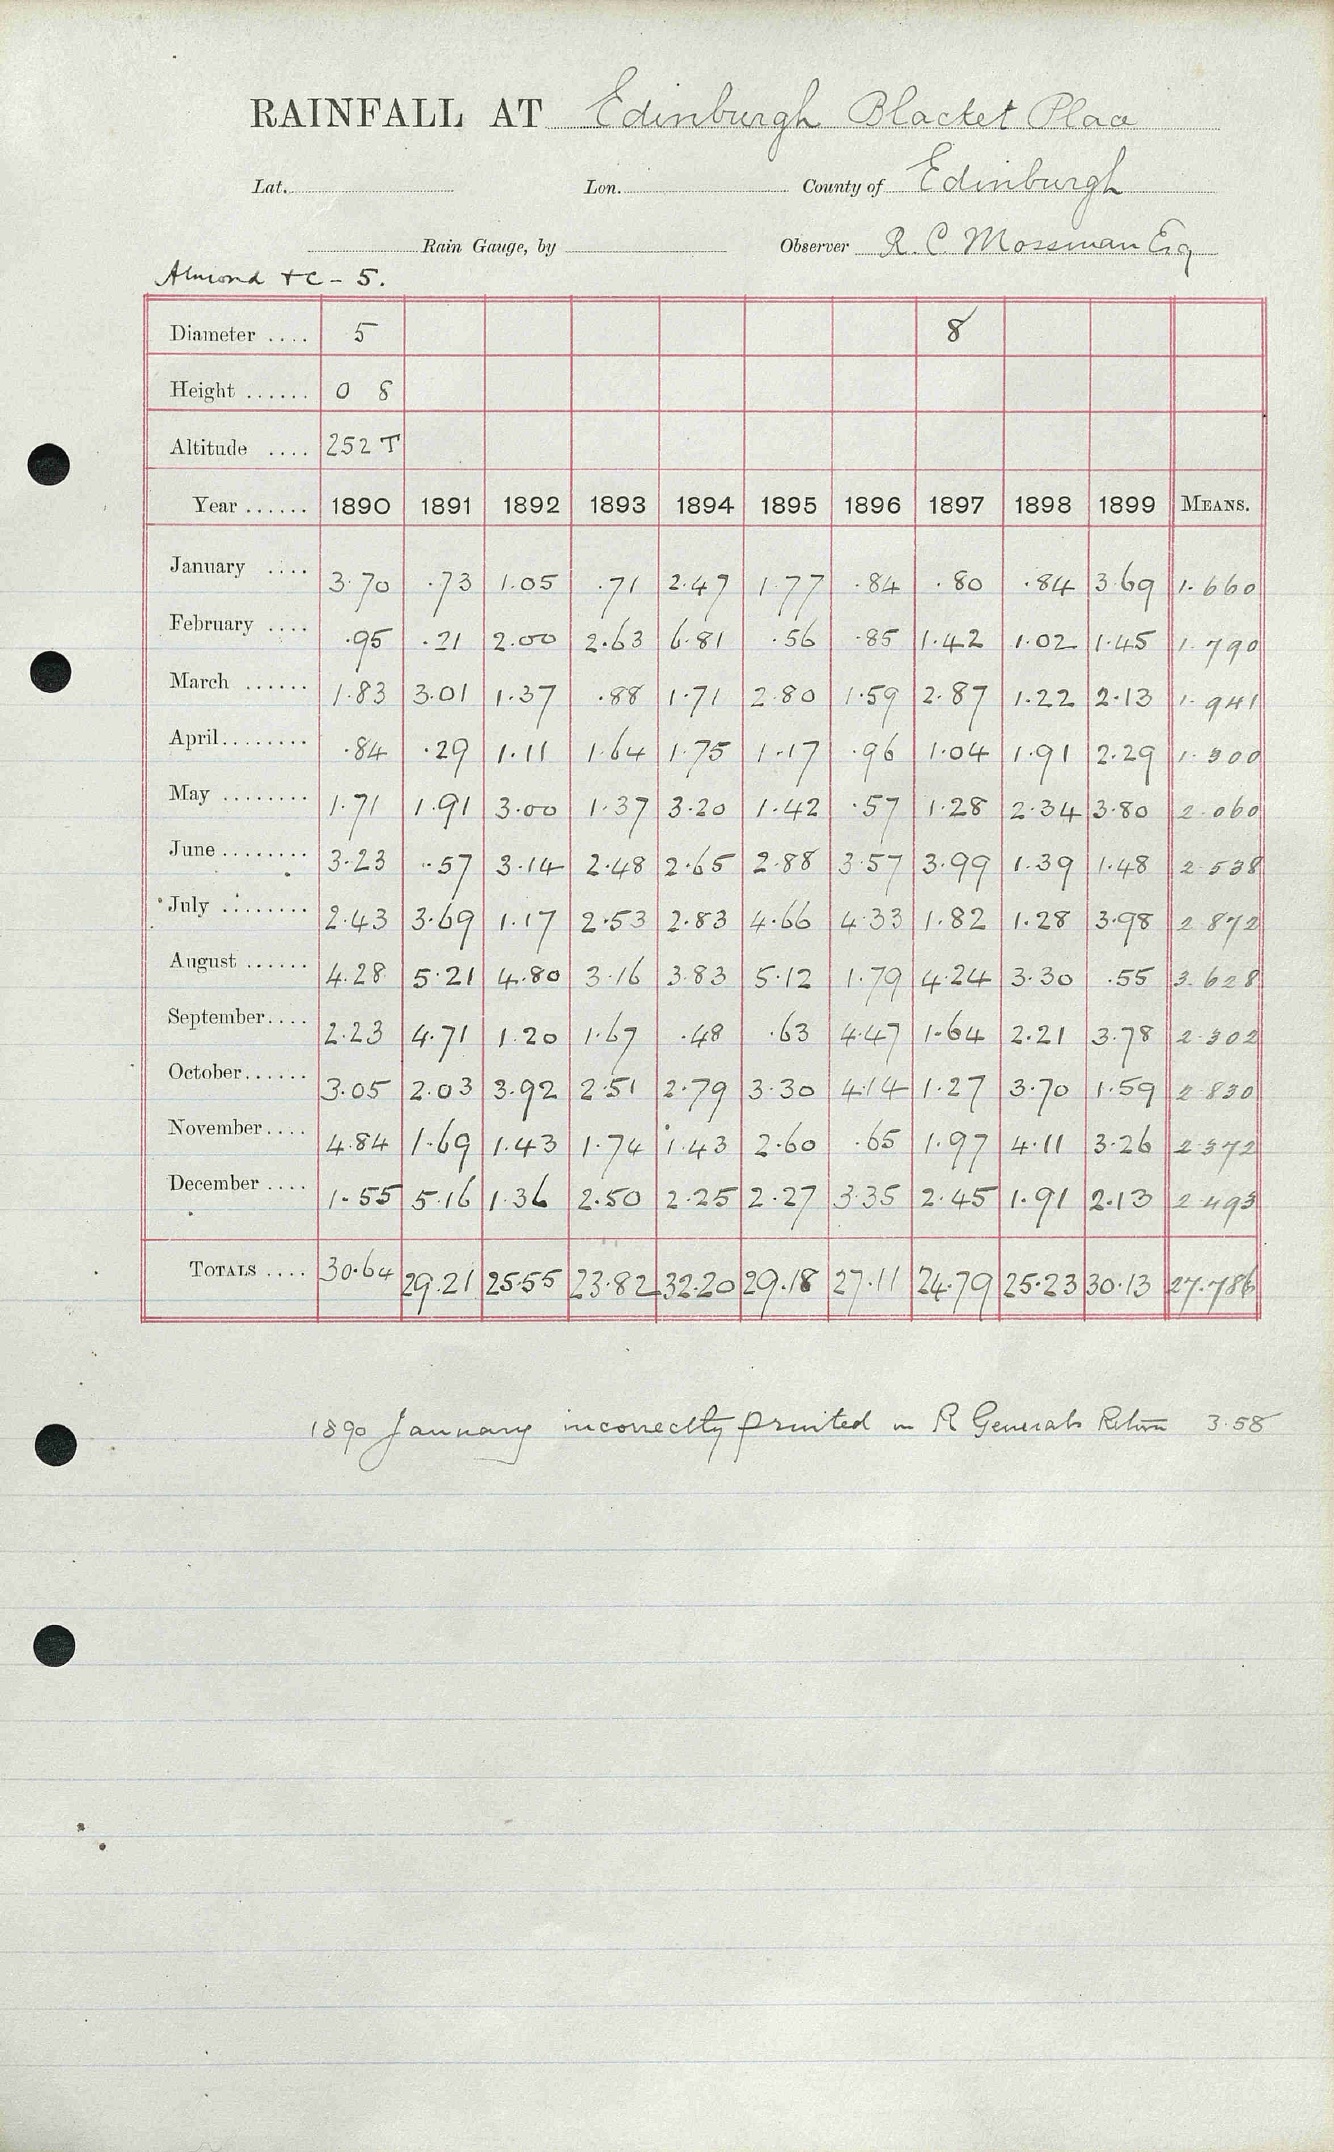 RAINFALL AT Edinburgh Blacket Place
Lat. Lon. County of Edinburgh
Rain Gauge, by Observer R. C. Mossman Esq
Almond &c - 5.
Diameter .... 5 8
Height ...... 0 8
Altitude .... 252 T
Year ...... 1890 1891 1892 1893 1894 1895 1896 1897 1898 1899 MEANS.
January .... 3.70 .73 1.05 .71 2.47 1.77 .84 .80 .84 3.69 1.660
February .... .95 .21 2.00 2.63 6.81 .56 .85 1.42 1.02 1.45 1.790
March ...... 1.83 3.01 1.37 .88 1.71 2.80 1.59 2.87 1.22 2.13 1.941
April........ .84 .29 1.11 1.64 1.75 1.17 .96 1.04 1.91 2.29 1.300
May ........ 1.71 1.91 3.00 1.37 3.20 1.42 .57 1.28 2.34 3.80 2.060
June ........ 3.23 .57 3.14 2.48 2.65 2.88 3.57 3.99 1.39 1.48 2.538
July ........ 2.43 3.69 1.17 2.53 2.83 4.66 4.33 1.82 1.28 3.98 2.872
August ...... 4.28 5.21 4.80 3.16 3.83 5.12 1.79 4.24 3.30 .55 3.628
September.... 2.23 4.71 1.20 1.67 .48 .63 4.47 1.64 2.21 3.78 2.302
October...... 3.05 2.03 3.92 2.51 2.79 3.30 4.14 1.27 3.70 1.59 2.830
November.... 4.84 1.69 1.43 1.74 1.43 2.60 .65 1.97 4.11 3.26 2.372
December .... 1.55 5.16 1.36 2.50 2.25 2.27 3.35 2.45 1.91 2.13 2.493
TOTALS .... 30.64 29.21 25.55 23.82 32.20 29.18 27.11 24.79 25.23 30.13 27.786
1890 January incorrectly printed in R Generals Return 3.58